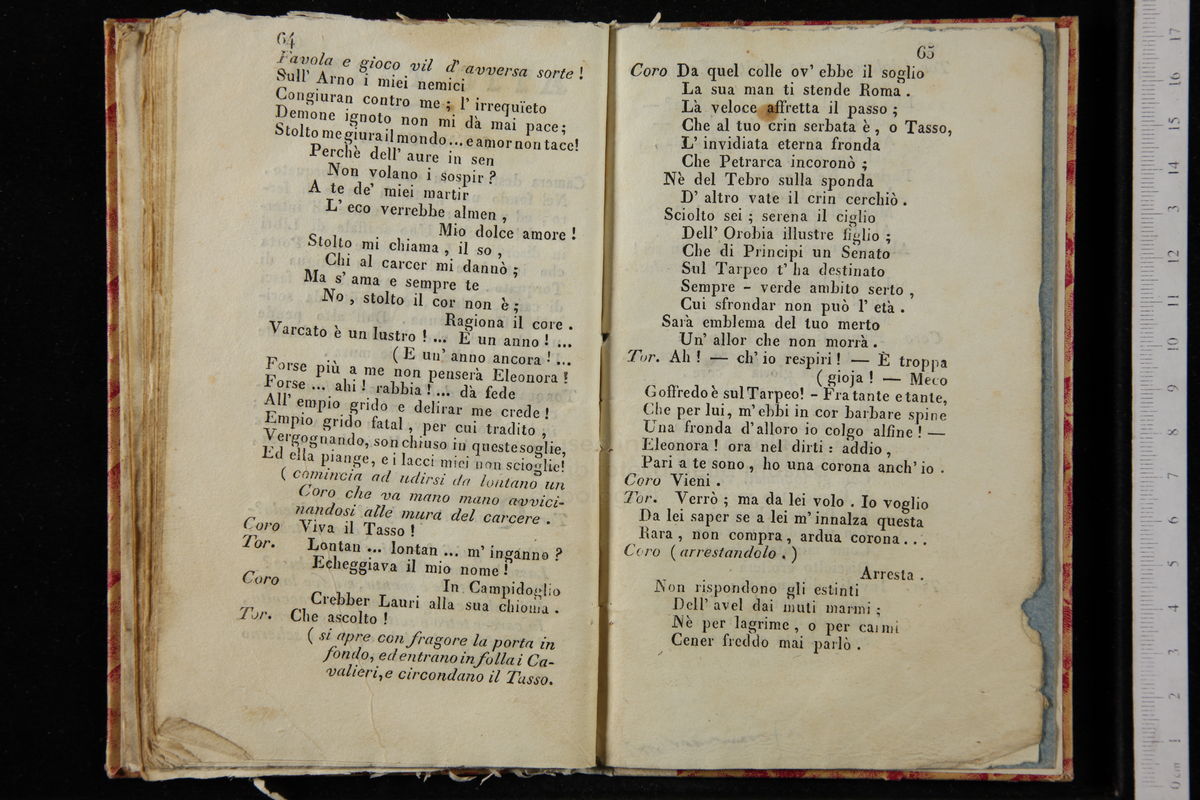 64
Favola e gioco vil d' avversa sorte !
Sull' Arno i miei nemici
Congiuran contro me ; l' irrequïeto
Demone ignoto non mi dà mai pace;
Stolto me giura il mondo ... e amor non tace!
Perchè dell' aure in sen
Non volano i sospir ?
A te de' miei martir
L' eco verrebbe almen ,
Mio dolce amore !
Stolto mi chiama , il so ,
Chi al carcer mi dannò ;
Ma s' ama e sempre te
No , stolto il cor non è ;
Ragiona il core .
Varcato è un lustro ! ... E un anno ! ...
( E un' anno ancora ! ...
Forse più a me non penserà Eleonora !
Forse ... ahi ! rabbia ! ... dà fede
All' empio grido e delirar me crede !
Empio grido fatal , per cui tradito ,
Vergognando, son chiuso in queste soglie,
Ed ella piange, e i lacci miei non scioglie!
( comincia ad udirsi da lontano un
Coro che va mano mano avvici-
nandosi alle mura del carcere .
Coro Viva il Tasso !
Tor. Lontan ... lontan ... m' inganno ?
Echeggiava il mio nome !
Coro In Campidoglio
Crebber Lauri alla sua chioma .
Tor. Che ascolto !
( si apre con fragore la porta in
fondo, ed entrano in folla i Ca-
valieri, e circondano il Tasso.
65
Coro Da quel colle ov' ebbe il soglio
La sua man ti stende Roma .
Là veloce affretta il passo ;
Che al tuo crin serbata è , o Tasso,
L' invidiata eterna fronda
Che Petrarca incoronò ;
Nè del Tebro sulla sponda
D' altro vate il crin cerchiò .
Sciolto sei ; serena il ciglio
Dell' Orobia illustre figlio ;
Che di Principi un Senato
Sul Tarpeo t' ha destinato
Sempre - verde ambito serto ,
Cui sfrondar non può l' età .
Sarà emblema del tuo merto
Un' allor che non morrà .
Tor. Ah ! — ch' io respiri ! — È troppa
( gioja ! — Meco
Goffredo è sul Tarpeo! - Fra tante e tante,
Che per lui, m' ebbi in cor barbare spine
Una fronda d'alloro io colgo alfine ! —
Eleonora ! ora nel dirti : addio ,
Pari a te sono , ho una corona anch' io .
Coro Vieni .
Tor. Verrò ; ma da lei volo . Io voglio
Da lei saper se a lei m' innalza questa
Rara , non compra , ardua corona . . .
Coro ( arrestandolo . )
Arresta .
Non rispondono gli estinti
Dell' avel dai muti marmi ;
Nè per lagrime , o per carmi
Cener freddo mai parlò .